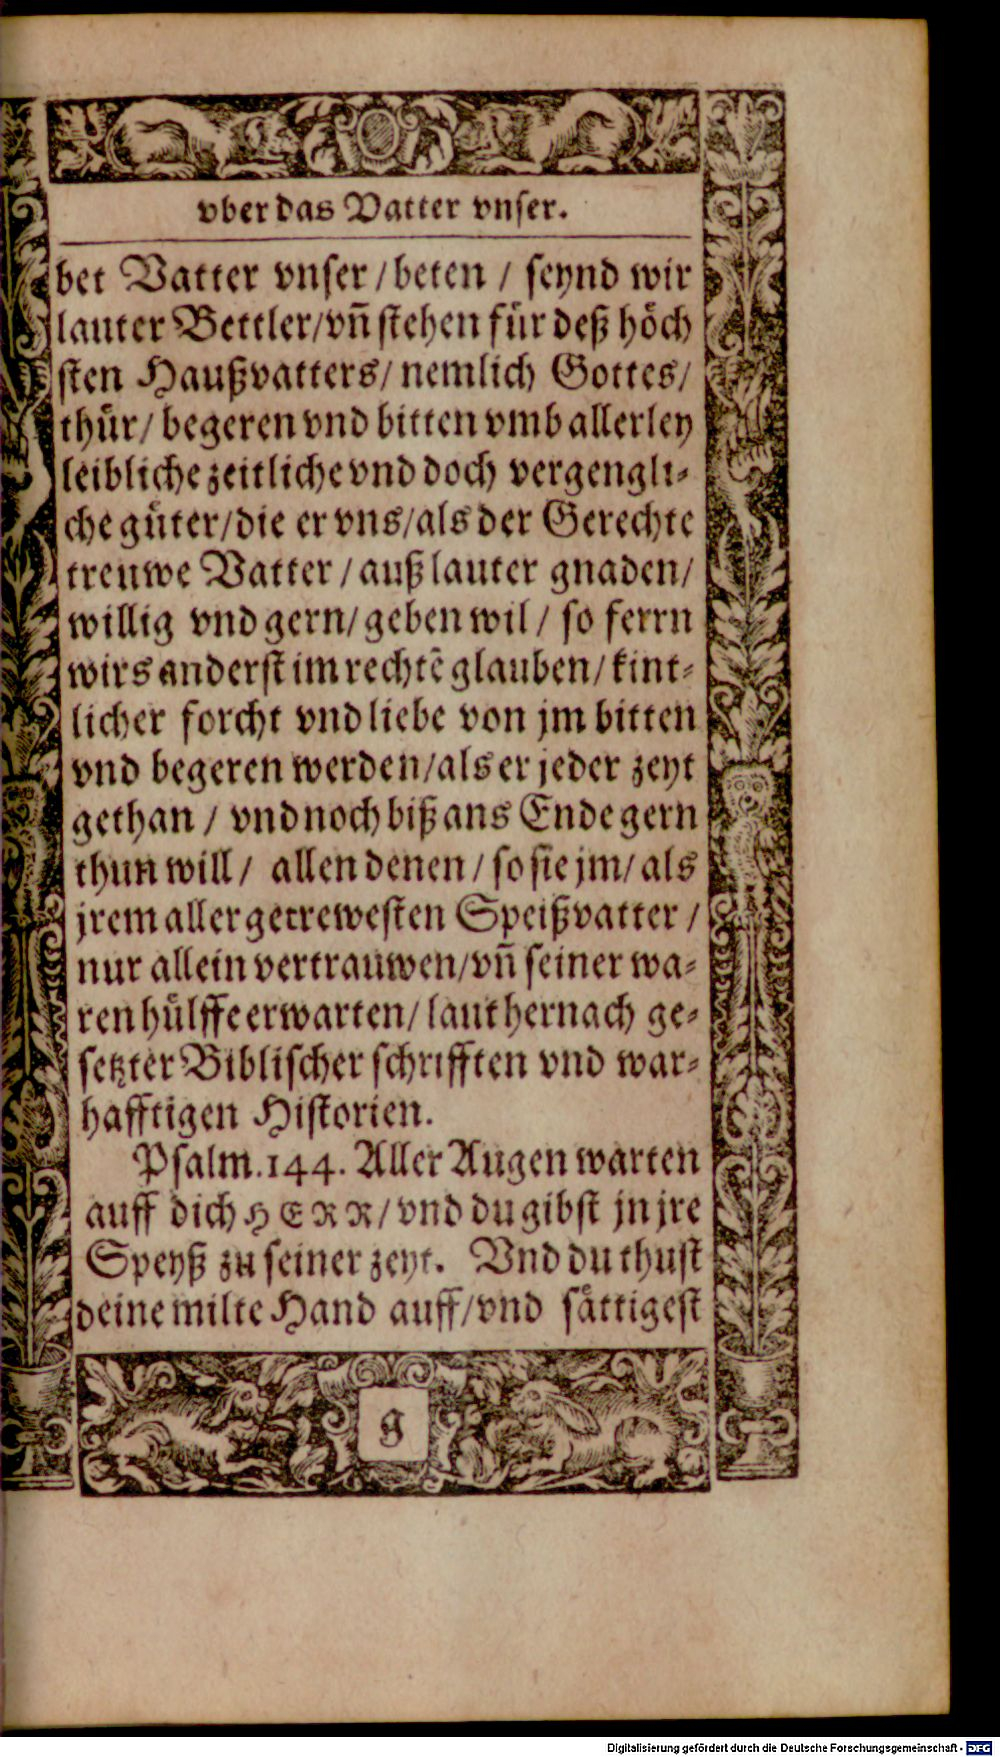 vber das Vatter vnser.
bet Vatter vnser / beten / seynd wir
lauter Bettler/vñ stehen für deß höch
sten Haußvatters/ nemlich Gottes/
thür/ begeren vnd bitten vmb allerley
leibliche zeitliche vnd doch vergengli-
che güter/die er vns/als der Gerechte
treuwe Vatter / auß lauter gnaden/
willig vnd gern/ geben wil / so ferrn
wirs anderst im rechtē glauben/ kint-
licher forcht vnd liebe von jm bitten
vnd begeren werden/als er jeder zeyt
gethan / vnd noch biß ans Ende gern
thun will / allen denen / so sie jm/ als
jrem aller getrewesten Speißvatter /
nur allein vertrauwen/vñ seiner wa-
ren hülffe erwarten/ laut hernach ge-
setzter Biblischer schrifften vnd war-
hafftigen Historien.
Psalm.144. Aller Augen warten
auff dich HERR/vnd du gibst jn jre
Speyß zu seiner zeyt. Vnd du thust
deine milte Hand auff/vnd sättigest
g
Digitalisierung gefördert durch die Deutsche Forschungsgemeinschaft - DFG